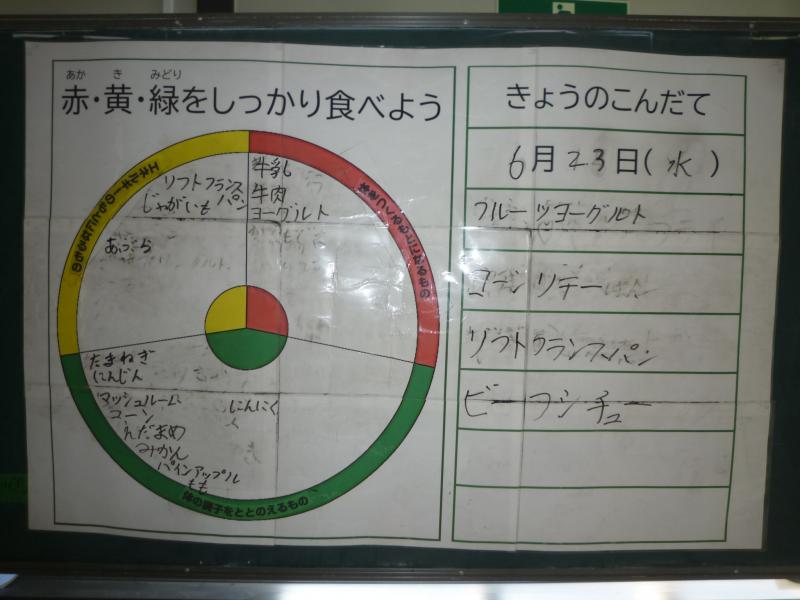 あか き みどり
赤・黄・緑をしっかり食べよう
エネルギーのもとになるもの
ソフトフランス
パン
じゃがいも
あぶら
体をつくるもとになるもの
牛乳
牛肉
ヨーグルト
たまねぎ
にんじん
マッシュルーム
コーン
えだまめ
みかん
パインアップル
もも
にんにく
体の調子をととのえるもの
きょうのこんだて
6月23日(水)
フルーツヨーグルト
コーンソテー
ソフトフランスパン
ビーフシチュー